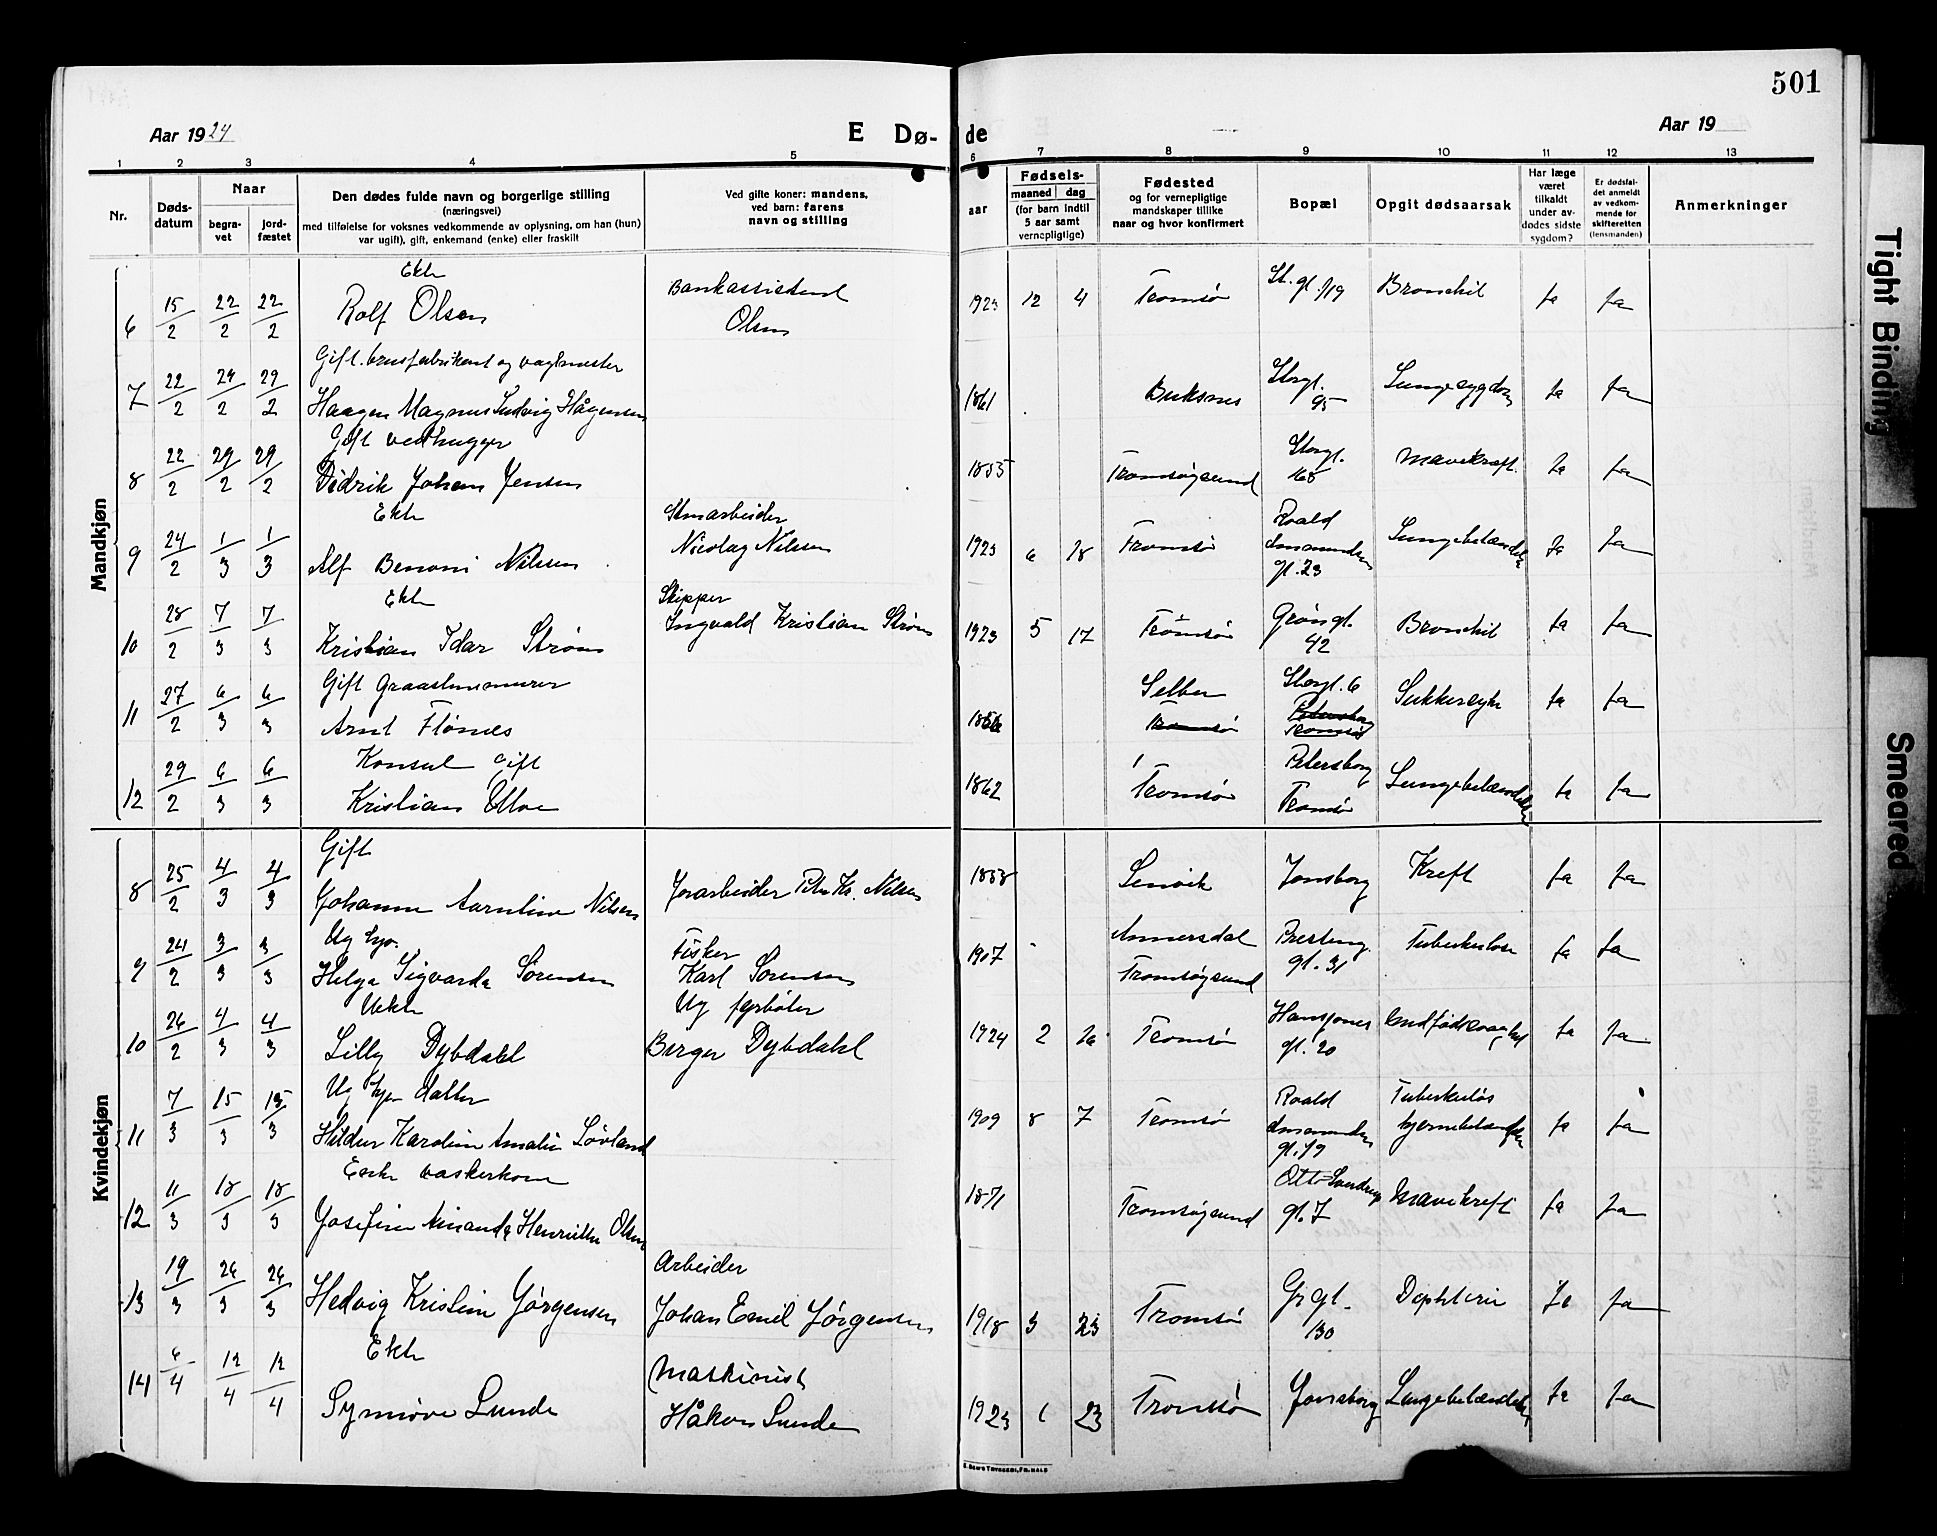 501
Aar 1924
E Dø-
de
Aar 19
1 2 3 4 5 6 7 8 9 10 11 12 13
Nr.
Døds-
datum
Naar
begra-
vet
jord-
fæstet
Den dødes fulde navn og borgerlige stilling
(næringsvei)
med tilføielse for voksnes vedkommende av oplysning, om han (hun)
var ugift), gift, enkemand (enke) eller fraskilt
Ved gifte koner: mandens,
ved barn: farens
navn og stilling
Fødsels-
aar
maaned dag
(for barn indtil
5 aar samt
vernepligtige)
Fødested
og for vernepligtige
mandskaper tillike
naar og hvor konfirmert
Bopæl
Opgit dødsaarsak
Har læge
været
tilkaldt
under av-
dødes sidste
sygdom?
Er dødsfal-
det anmeldt
av vedkom-
mende for
skifteretten
(lensmanden)
Anmerkninger
Mandkjøn
Ekte
6 15/2 22/2 22/2 Rolf Olsen Bankassistent Olsen 1923 12 4 Tromsø St. gt. 119 Bronchit Ja Ja
Gift. brusfabrikant og vagtmester
7 22/2 29/2 29/2 Haagen Magnus Ludvig Hågensen 1861 Buksnes Storgt. 95 Lungesygdom Ja Ja
Gift vedhugger
8 22/2 29/2 29/2 Didrik Johan Jensen 1855 Tromsøysund Storgt. 165 Mavekræft Ja Ja
Ekte
9 24/2 1/3 1/3 Alf Benoni Nilsen Stenarbeider Nicolay Nilsen 1923 6 18 Tromsø Roald Amundsens gt. 23 Lungebetændelse Ja Ja
Ekte
10 28/2 7/3 7/3 Kristian Idar Strøm Skipper Ingvald Kristian Strøm 1923 5 17 Tromsø Grøngt. 42 Bronchit Ja Ja
Gift Graastensmurer
11 27/2 6/3 6/3 Arnt Flønes Selbu Tromsø Storgt. 6 Petersborg Tromsø Sukkersyke Ja Ja
Konsul Gift
12 29/2 6/3 6/3 Kristian Ebbe 1862 Tromsø Petersborg Tromsø Lungebetændelse Ja Ja
Kvindekjøn
Gift
8 25/2 4/3 4/3 Johanne Nilsen Jorarbeider Peter Kr. Nilsen 1858 Lenvik Jonsborg Kreft Ja Ja
Ug hjv.
9 24/2 3/3 3/3 Helga Sigvarda Sørensen Fisker Karl Sørensen 1907 Tromsøysund gt. 31 Tuberkulose Ja Ja
Uekte
10 26/2 4/3 4/3 Lilly Dybdahl Ug fyrbøter Birger Dybdahl 1924 2 Tromsø Hansjonas gt. 20 Medfødt svaghet Ja Ja
Ug hjv datter
11 7/3 15/3 15/3 Hildur Karoline Amalie Løvland 1909 8 7 Tromsø Roald Amundsens gt. 19 Tuberkuløs hjernebetændelse Ja Ja
Enke vaskerkone
12 11/3 18/3 18/3 Josefine Amanda Henriette Olsen 1871 Tromsøysund Otto Sverdrup gt. 7 Mavekreft Ja Ja
13 19/3 26/3 26/3 Hedvig Kristine Jørgensen Arbeider Johan Emil Jørgensen 1918 3 23 Tromsø Gr gt. 130 Diphteri Ja Ja
Ekte
14 6/4 12/4 12/4 Synnøve Lunde Maskinist Håkon Lunde 1923 1 23 Tromsø Jonsborg Lungebetændelse Ja Ja
Tight Binding
Smeared